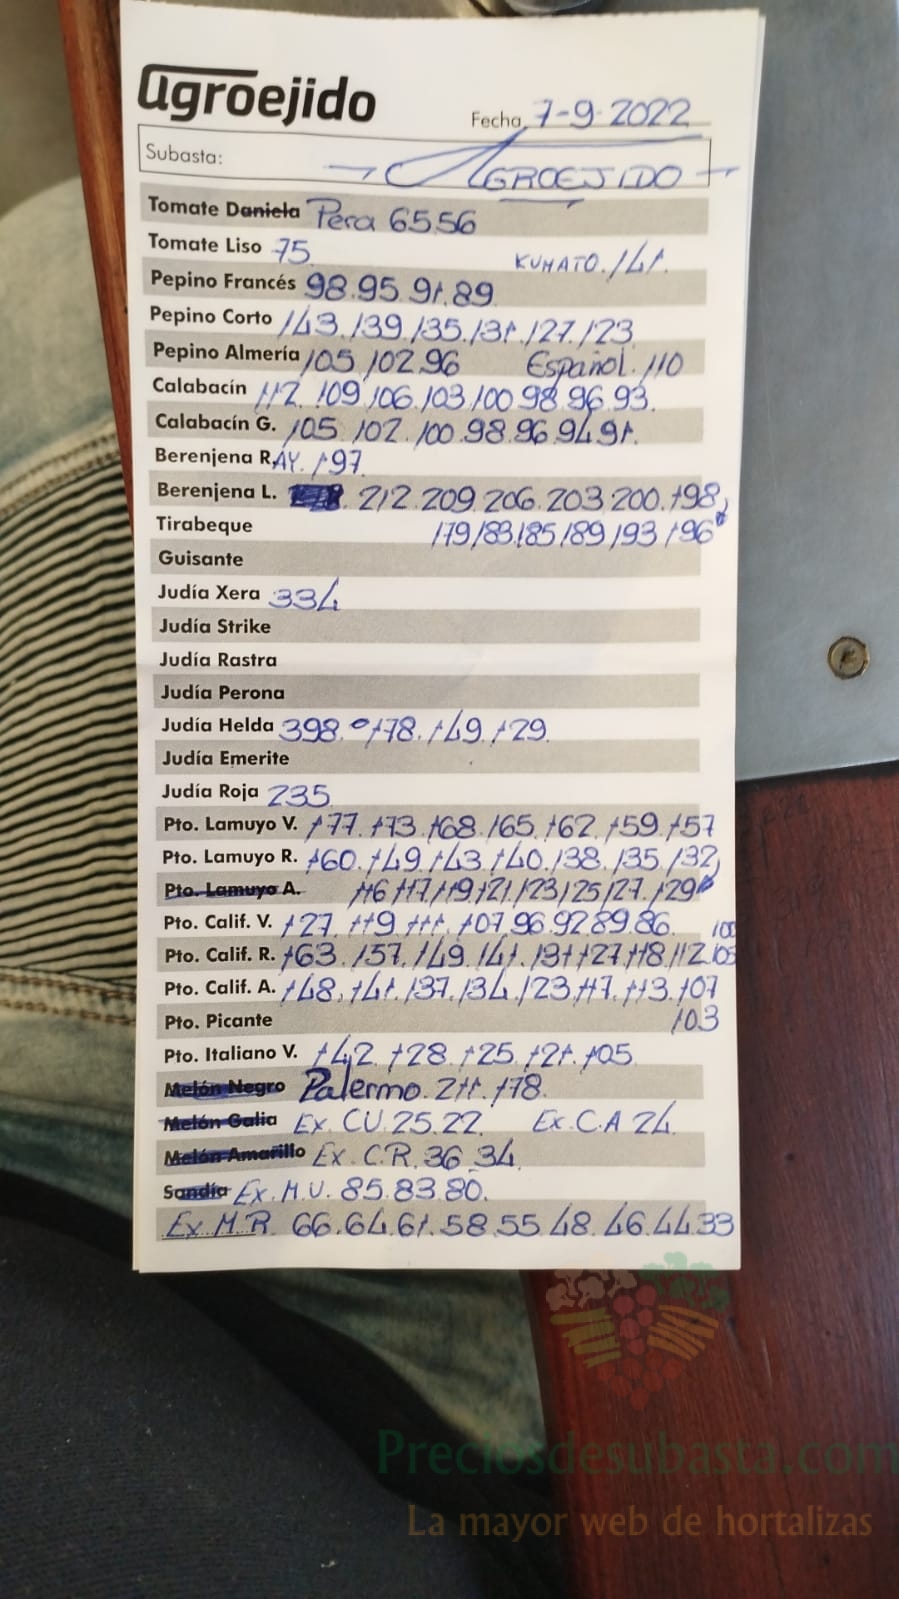 agroejido
Fecha 7-9-2022
Subasta: AGROEJIDO
Tomate Daniela Pera 65 56
Tomate Liso 75 KUMATO. 141.
Pepino Francés 98.95.91.89
Pepino Corto 143.139.135.131.127.123
Pepino Almería 105.102.96 Español.110
Calabacín 112.109.106.103.100.98.96.93.
Calabacín G. 105.102.100.98.96.94.91.
Berenjena R.AY. 197
Berenjena L. 212.209.206.203.200.198,
Tirabeque 179.183.185.189.193.196
Guisante
Judía Xera 334
Judía Strike
Judía Rastra
Judía Perona
Judía Helda 398.178.149.129.
Judía Emerite
Judía Roja 235
Pto. Lamuyo V. 177.173.168.165.162.159.157
Pto. Lamuyo R. 160.149.143.140.138.135.132,
Pto. Lamuyo A. 116.117.119.121.123.125.127.129
Pto. Calif. V. 127.119.111.107.96.92.89.86. 100
Pto. Calif. R. 163.157.149.141.131.127.118.112.105
Pto. Calif. A. 148.141.137.134.123.117.113.107
Pto. Picante 103
Pto. Italiano V. 142.128.125.121.105.
Melón Negro Palermo.211.178.
Melón Galia Ex. CU.25.22. Ex.C.A 24.
Melón Amarillo Ex.C.R.36.34.
Sandía Ex.M.U. 85.83.80.
Ex.M.R. 66.64.61.58.55.48.46.44.33
Preciosdesubasta.com
La mayor web de hortalizas